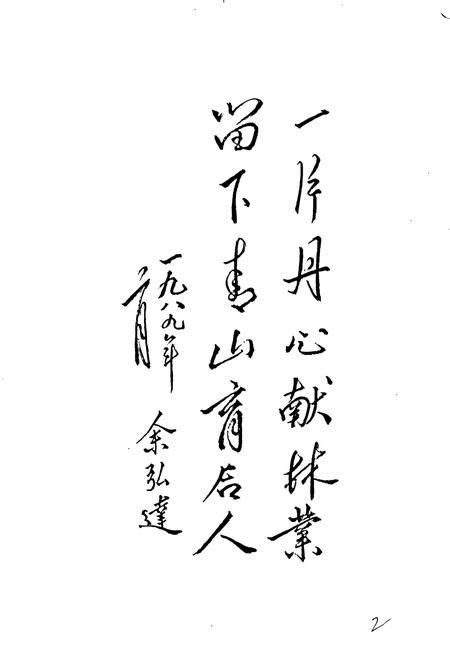 一片丹心献林业
留下青山育后人
一九八九年
二月
余弘達
2